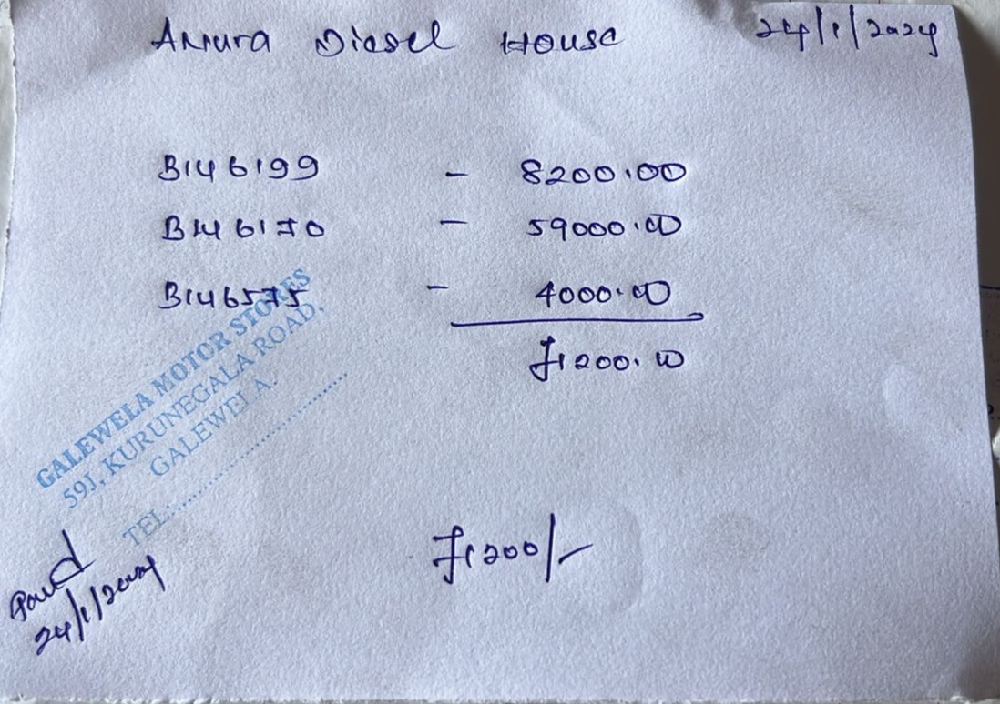 Anura Diesel House 24/1/2024
B146199 - 8200.00
B146170 - 59000.00
B146575 - 4000.00
71200.00
GALEWELA MOTOR STORES
59J, KURUNEGALA ROAD,
GALEWELA.
TEL:..............................
71200/-
Paid
24/1/2024